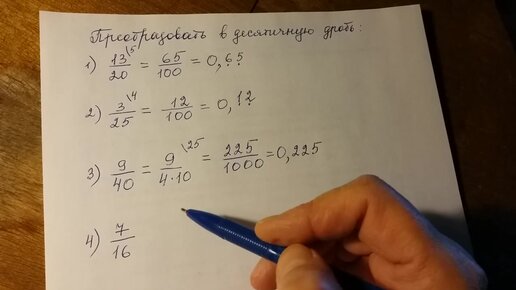 Преобразовать в десятичную дробь:
1) 13/20 \5 = 65/100 = 0,65
2) 3/25 \4 = 12/100 = 0,12
3) 9/40 = 9/4·10 \25 = 225/1000 = 0,225
4) 7/16